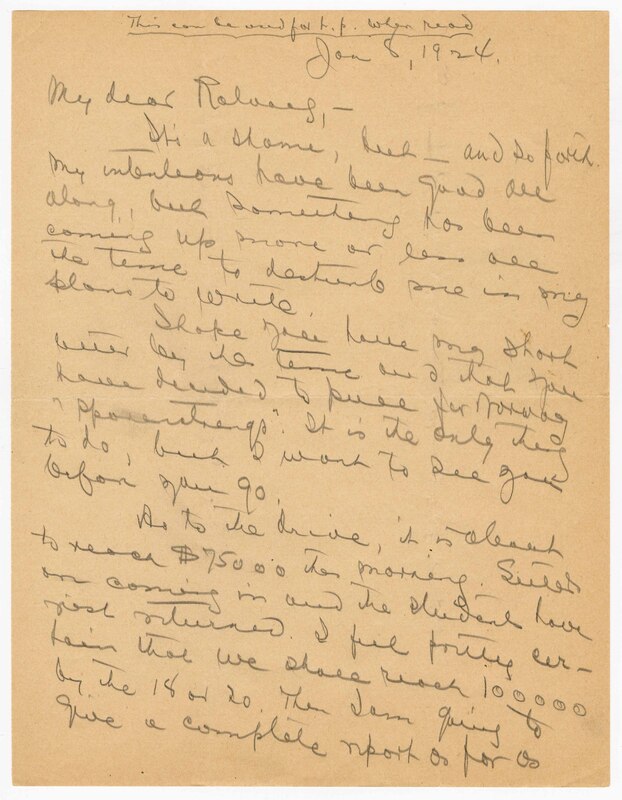 This can be used for t.p. when read
Jan 8, 1924.
My dear Rolvaag,—
Its a shame, but — and so forth.
My intentions have been good all
along, but something has been
coming up more or less all
the time to disturb me in my
plans to write.
I hope you have my short
letter by the time and that you
have decided to pull for Norway
"sporenstrengs". It is the only thing
to do, but I want to see you
before you go.
As to the drive, it is about
to reach $75000 this morning. Letters
are coming in and the students have
just returned. I feel pretty cer-
tain that we shall reach 100000
by the 18 or 20. Then I am going to
give a complete report as far as